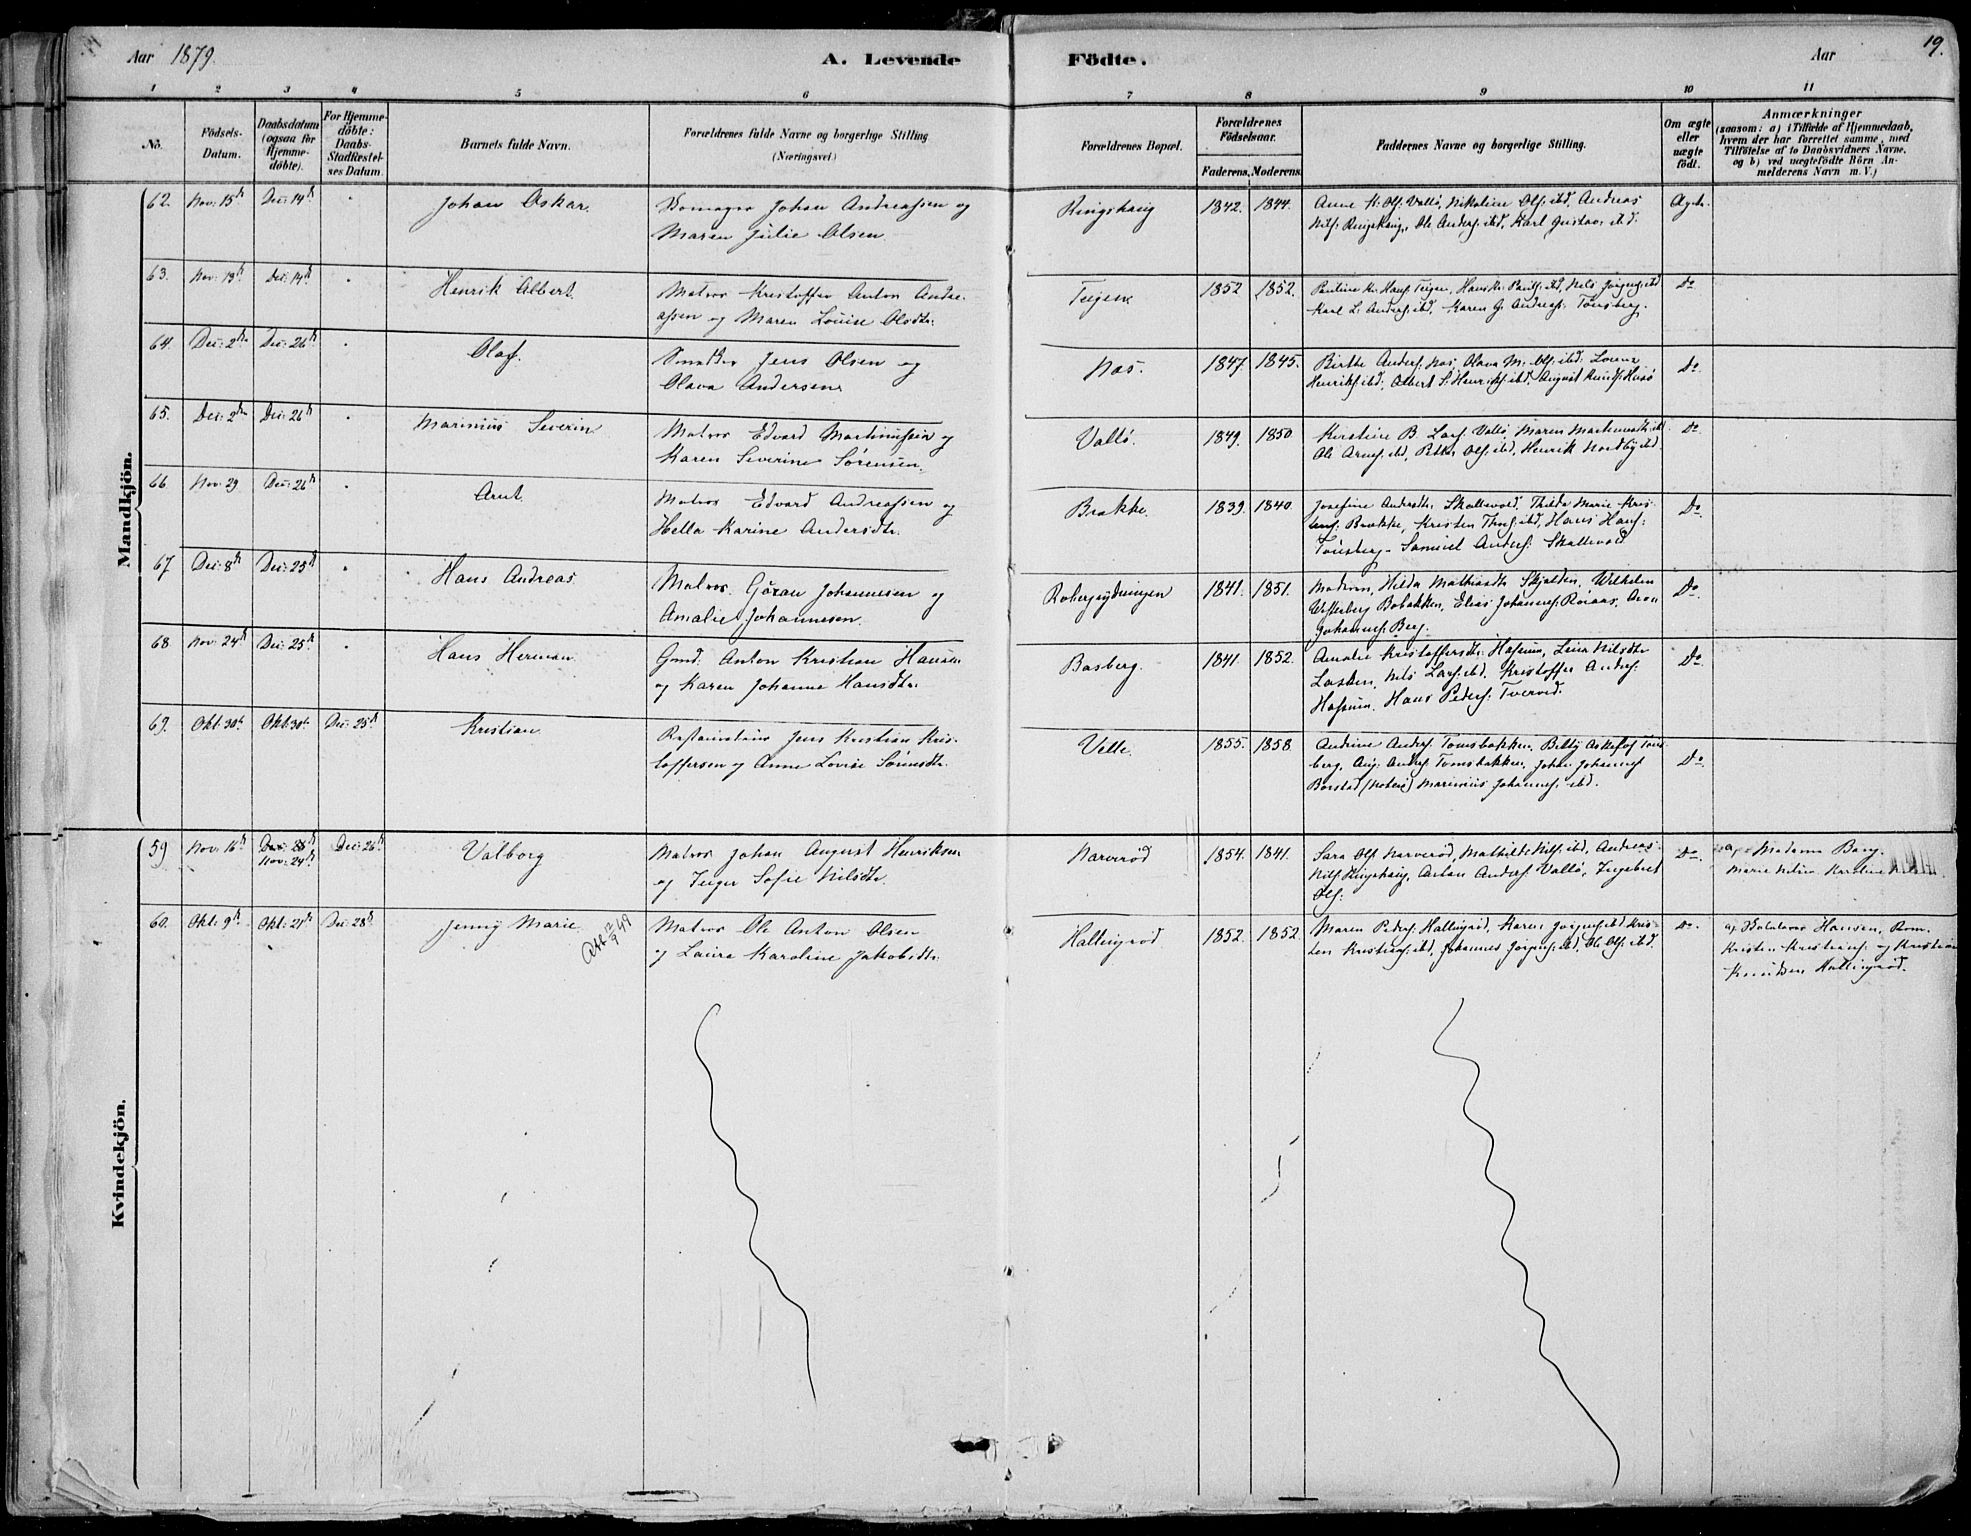 Aar 1879.
A. Levende Födte.
Aar
19.
1 2 3 4 5 6 7 8 9 10 11
No.
Födsels-
Datum.
Daabsdatum
(ogsaa for
Hjemme-
döbte).
For Hjemme-
döbte:
Daabs-
Stadfæstel-
ses Datum.
Barnets fulde Navn.
Forældrenes fulde Navne og borgerlige Stilling
(Næringsvei.)
Forældrenes Bopæl.
Forældrenes
Födselsaar.
Faderens. Moderens.
Faddernes Navne og borgerlige Stilling.
Om ægte
eller
uægte
födt.
Anmærkninger
(saasom: a) i Tilfælde af Hjemmedaab,
hvem der har forrettet samme, med
Tilföielse af to Daabsvidners Navne,
og b) ved uægtefödte Börn An-
melderens Navn m. V.)
Mandkjön.
62. Nov: 15d Dec: 14d Johan Oskar. Johan Andreassen og
Maren Julie Olsen
Ringshaug 1842. 1844. Anne K. Ols: Vallö, Nikoline Ols: ibd, Andreas
Nils: Ringshaug, Ole Anders: ibd, Karl Gustav: ibd.
Ægte.
63. Nov: 19d Dec: 14d Henrik Albert. Matros Kristoffer Anton Andre-
assen og Maren Louise Olsdtr.
Teigen 1852 1852. Teigen, Nils Jörgens: ibd
Karl L. Anders: ibd, Karen G. Andreas: Tönsberg.
Do
64. Dec: 2d Dec: 26d Olaf. Jens Olsen og
Olava Andersen
Næs. 1847. 1845. Birthe Anders: Næs, Olava M. Ols: ibd,
Henriks: ibd, Albert S. Henriks: ibd, August Husö
Do
65. Dec: 2d Dec: 26d Marinius Severin Matros Edvard Martinussen og
Karen Severine Sörensen.
Vallö. 1849. 1850. Kirstine B. Lars: Vallö, Maren
Ole Arnes: ibd, Ols: ibd, Henrik Nordby ibd.
Do
66 Nov: 29 Dec: 26d Arnt. Matros Edvard Andreassen og
Hella Karine Andersdtr.
Brække. 1839. 1840. Josefine Andersdtr. Skallevold, Thilda Marie Kris-
tens: Brække, Kristen Thos: ibd, Hans Hans:
Tönsberg - Samuel Anders: Skallevold
Do
67 Dec: 8d Dec: 25d Hans Andreas Matros Göran Johannesen og
Amalie Johannesen.
1841. 1851. Hilda Mathiasdtr Skjelden, Wilhelm
Vesterberg Bobakken, Elias Johannes: Röraas, Aron
Johannes: Berg.
Do
68 Nov: 24d Dec: 25d Hans Herman Gmd. Anton Kristian Hansen
og Karen Johanne Hansdtr.
Basberg. 1841. 1852. Amalie Kristoffersdtr: Hassum, Nilsdtr
Nils Lars: ibd, Kristoffer Anders:
Hassum, Hans Peders: Tvervei.
Do
69. Okt: 30d Okt: 30d Dec: 25d Kristian Jens Kristian Kris-
toffersen og Anne Lovise Sörensdtr.
Velle. 1855. 1858. Andrine Anders: Tomsbakken, Töns-
berg, Aug. Anders: Tomsbakken, Johan Johannes:
Borstad Marinius Johannes: ibd.
Do
Kvindekjön.
59 Nov: 16d Nov: 24d Dec: 26d Valborg Matros Johan August Henriksen
og Inger Sofie Nilsdtr
Narveröd 1854. 1841. Sara Ols: Narveröd, Mathilde Nils: ibd, Andreas
Nils: Ringshaug, Anton Anders: Vallö, Ingebret
Ols:
Do
a, Madame Berg.
60. Okt: 9d Okt: 21d Dec: 28d Jenny Marie. Matros Ole Anton Olsen
og Laura Karoline Jakobsdtr.
Hallingröd 1852. 1852 Maren Peders: Hallingröd, Karen Jörgens: ibd, Kris-
ten Kristians: ibd, Johannes Jörgens: ibd, Ole Ols: ibd.
Do
a, Hansen, Rom.
Kristen Kristians: og Kristian
Knudsen Hallingröd.